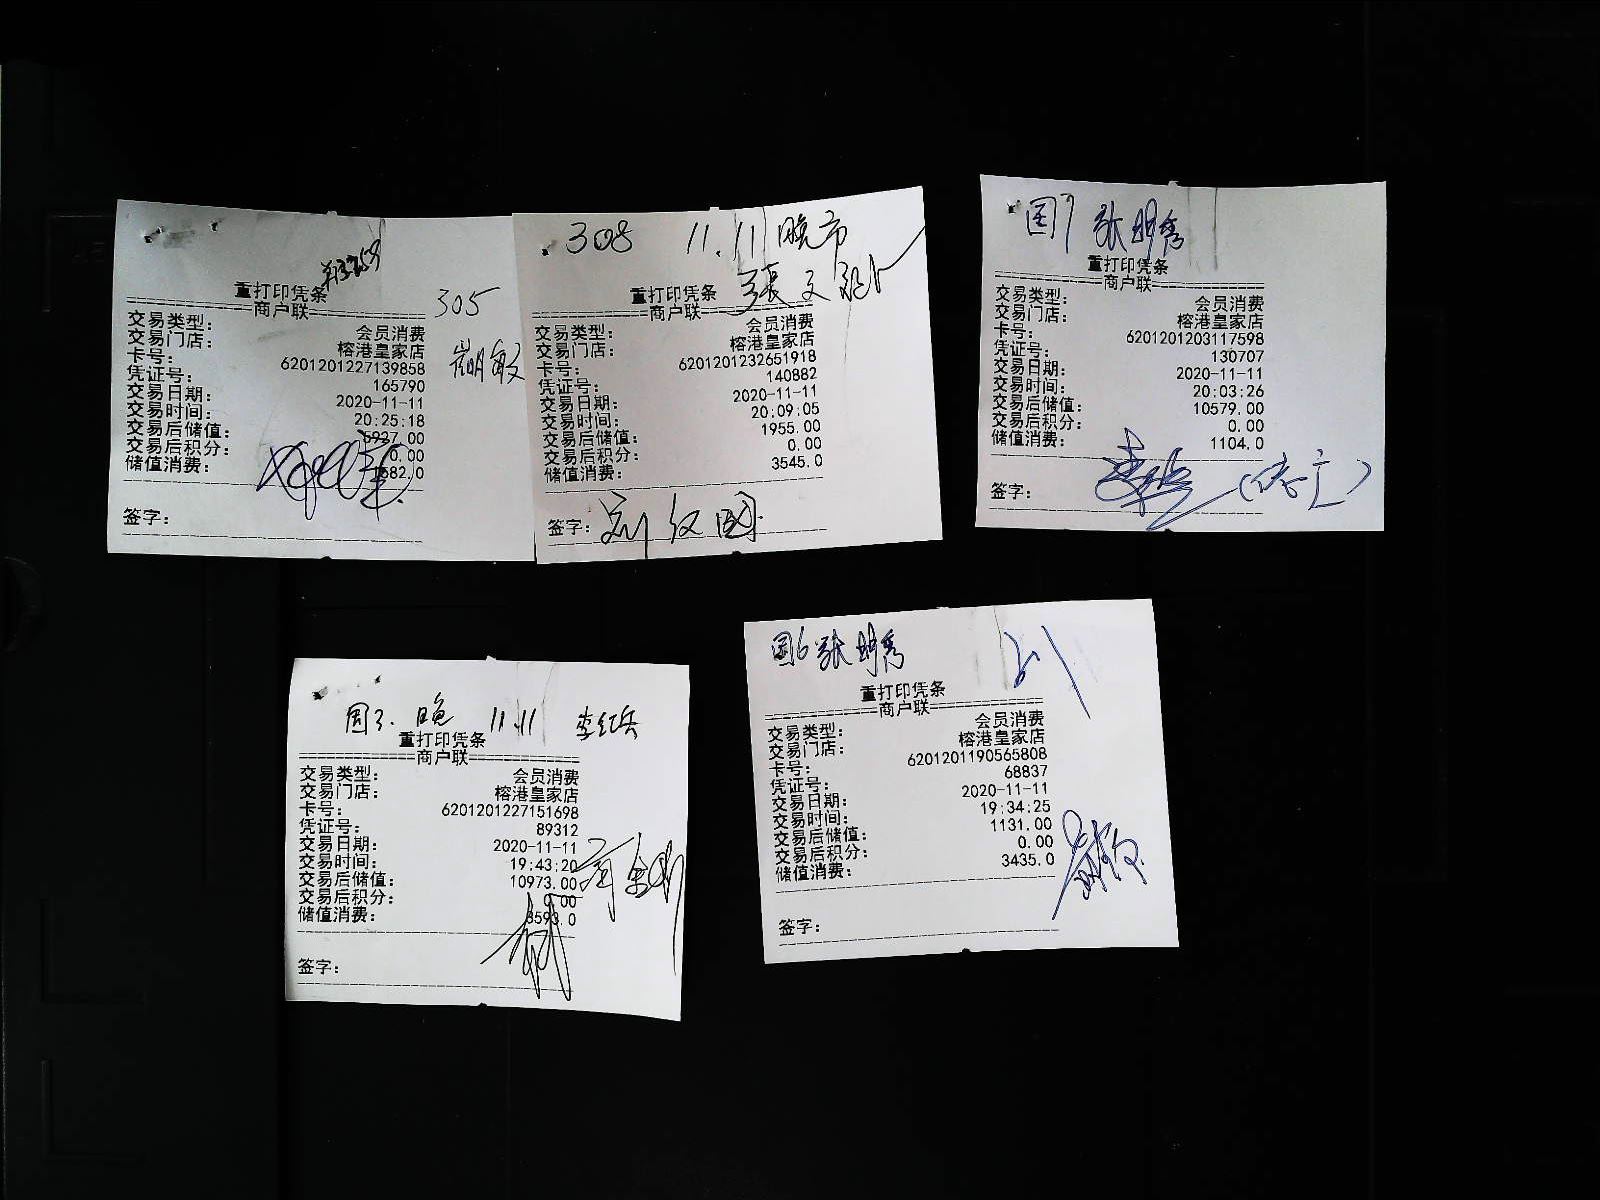 305
重打印凭条
商户联
交易类型: 会员消费
交易门店: 榕港皇家店
卡号: 6201201227139858
凭证号: 165790
交易日期: 2020-11-11
交易时间: 20:25:18
交易后储值: 5927.00
交易后积分: 0.00
储值消费: 682.0
签字:
308 11.11 晚市
張文
重打印凭条
商户联
交易类型: 会员消费
交易门店: 榕港皇家店
卡号: 6201201232651918
凭证号: 140882
交易日期: 2020-11-11
交易时间: 20:09:05
交易后储值: 1955.00
交易后积分: 0.00
储值消费: 3545.0
签字: 刘红国
国7 张明秀
重打印凭条
商户联
交易类型: 会员消费
交易门店: 榕港皇家店
卡号: 6201201203117598
凭证号: 130707
交易日期: 2020-11-11
交易时间: 20:03:26
交易后储值: 10579.00
交易后积分: 0.00
储值消费: 1104.0
签字:
国3. 晚 11.11 李红兵
重打印凭条
商户联
交易类型: 会员消费
交易门店: 榕港皇家店
卡号: 6201201227151698
凭证号: 89312
交易日期: 2020-11-11
交易时间: 19:43:20
交易后储值: 10973.00
交易后积分: 0.00
储值消费: 3593.0
签字:
国6 张明秀
重打印凭条
商户联
交易类型: 会员消费
交易门店: 榕港皇家店
卡号: 6201201190565808
凭证号: 68837
交易日期: 2020-11-11
交易时间: 19:34:25
交易后储值: 1131.00
交易后积分: 0.00
储值消费: 3435.0
签字: